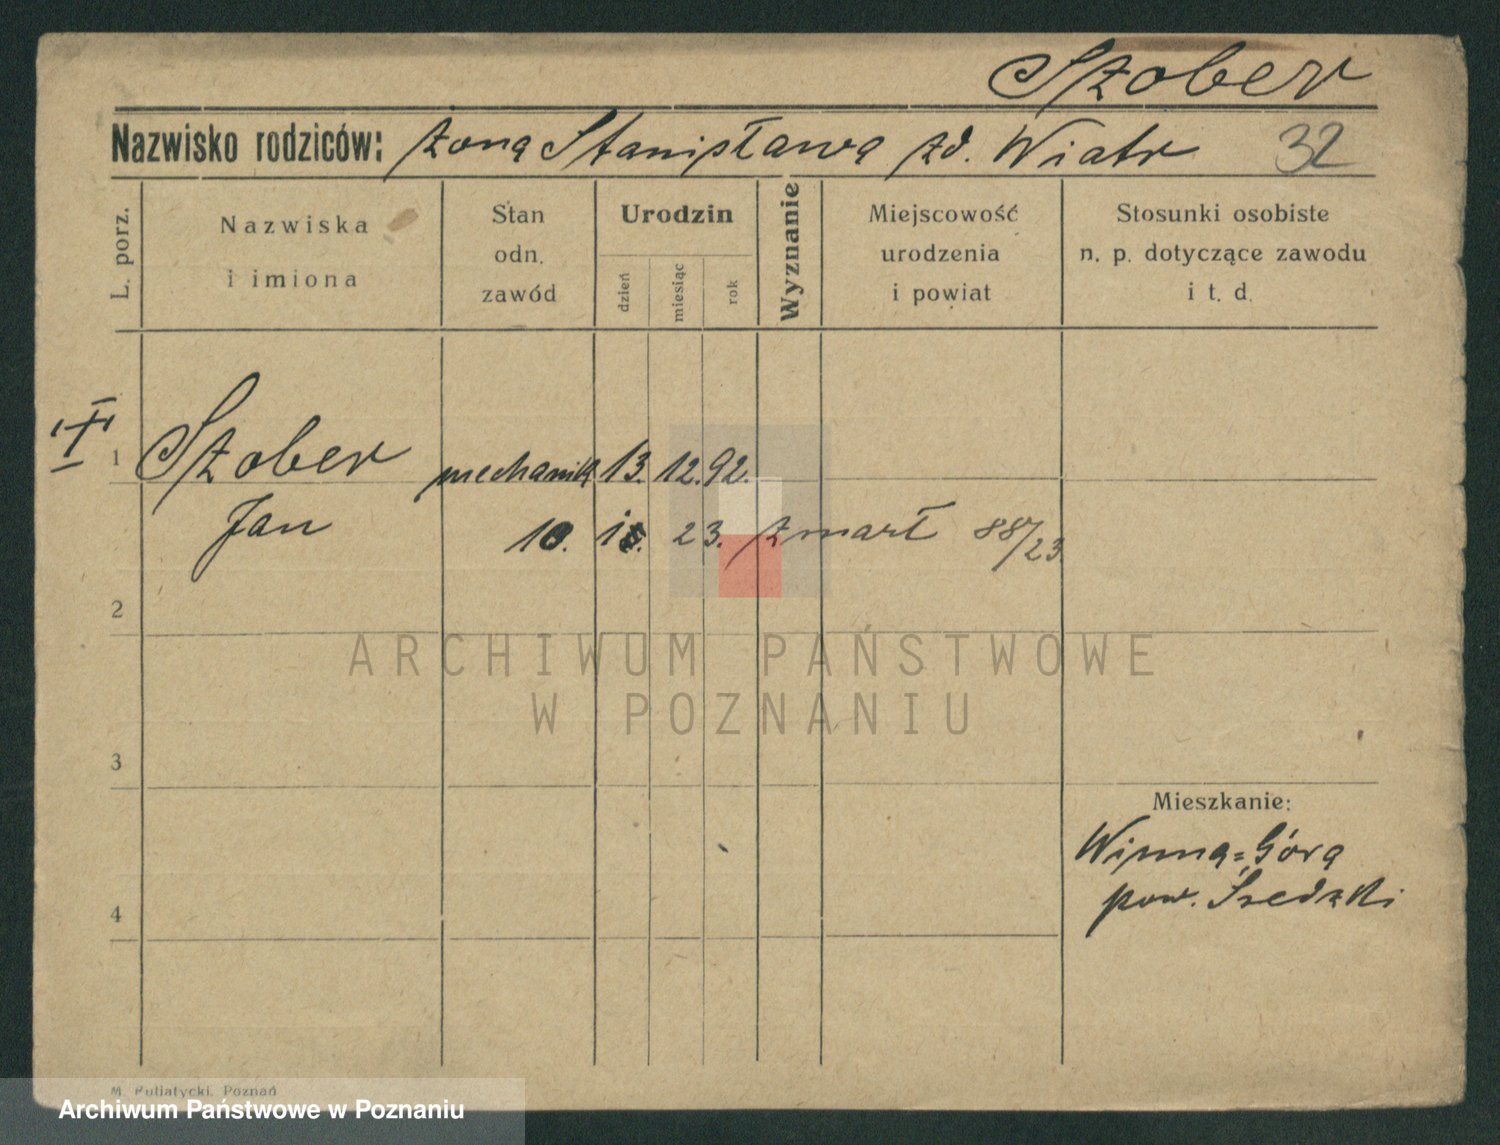 Szober
Nazwisko rodziców: żona Stanisława zd. Wiatr 32
L. porz.
Nazwiska
i imiona
Stan
odn.
zawód
Urodzin
dzień
miesiąc
rok
Wyznanie
Miejscowość
urodzenia
i powiat
Stosunki osobiste
n. p. dotyczące zawodu
i t. d.
I
1 Szober mechanik 13. 12. 92.
Jan 10. 23. zmarł 88/23
2
3
4
Mieszkanie:
Winna=Góra
pow. Średzki
ARCHIWUM PAŃSTWOWE
W POZNANIU
M. Putiatycki, Poznań
Archiwum Państwowe w Poznaniu